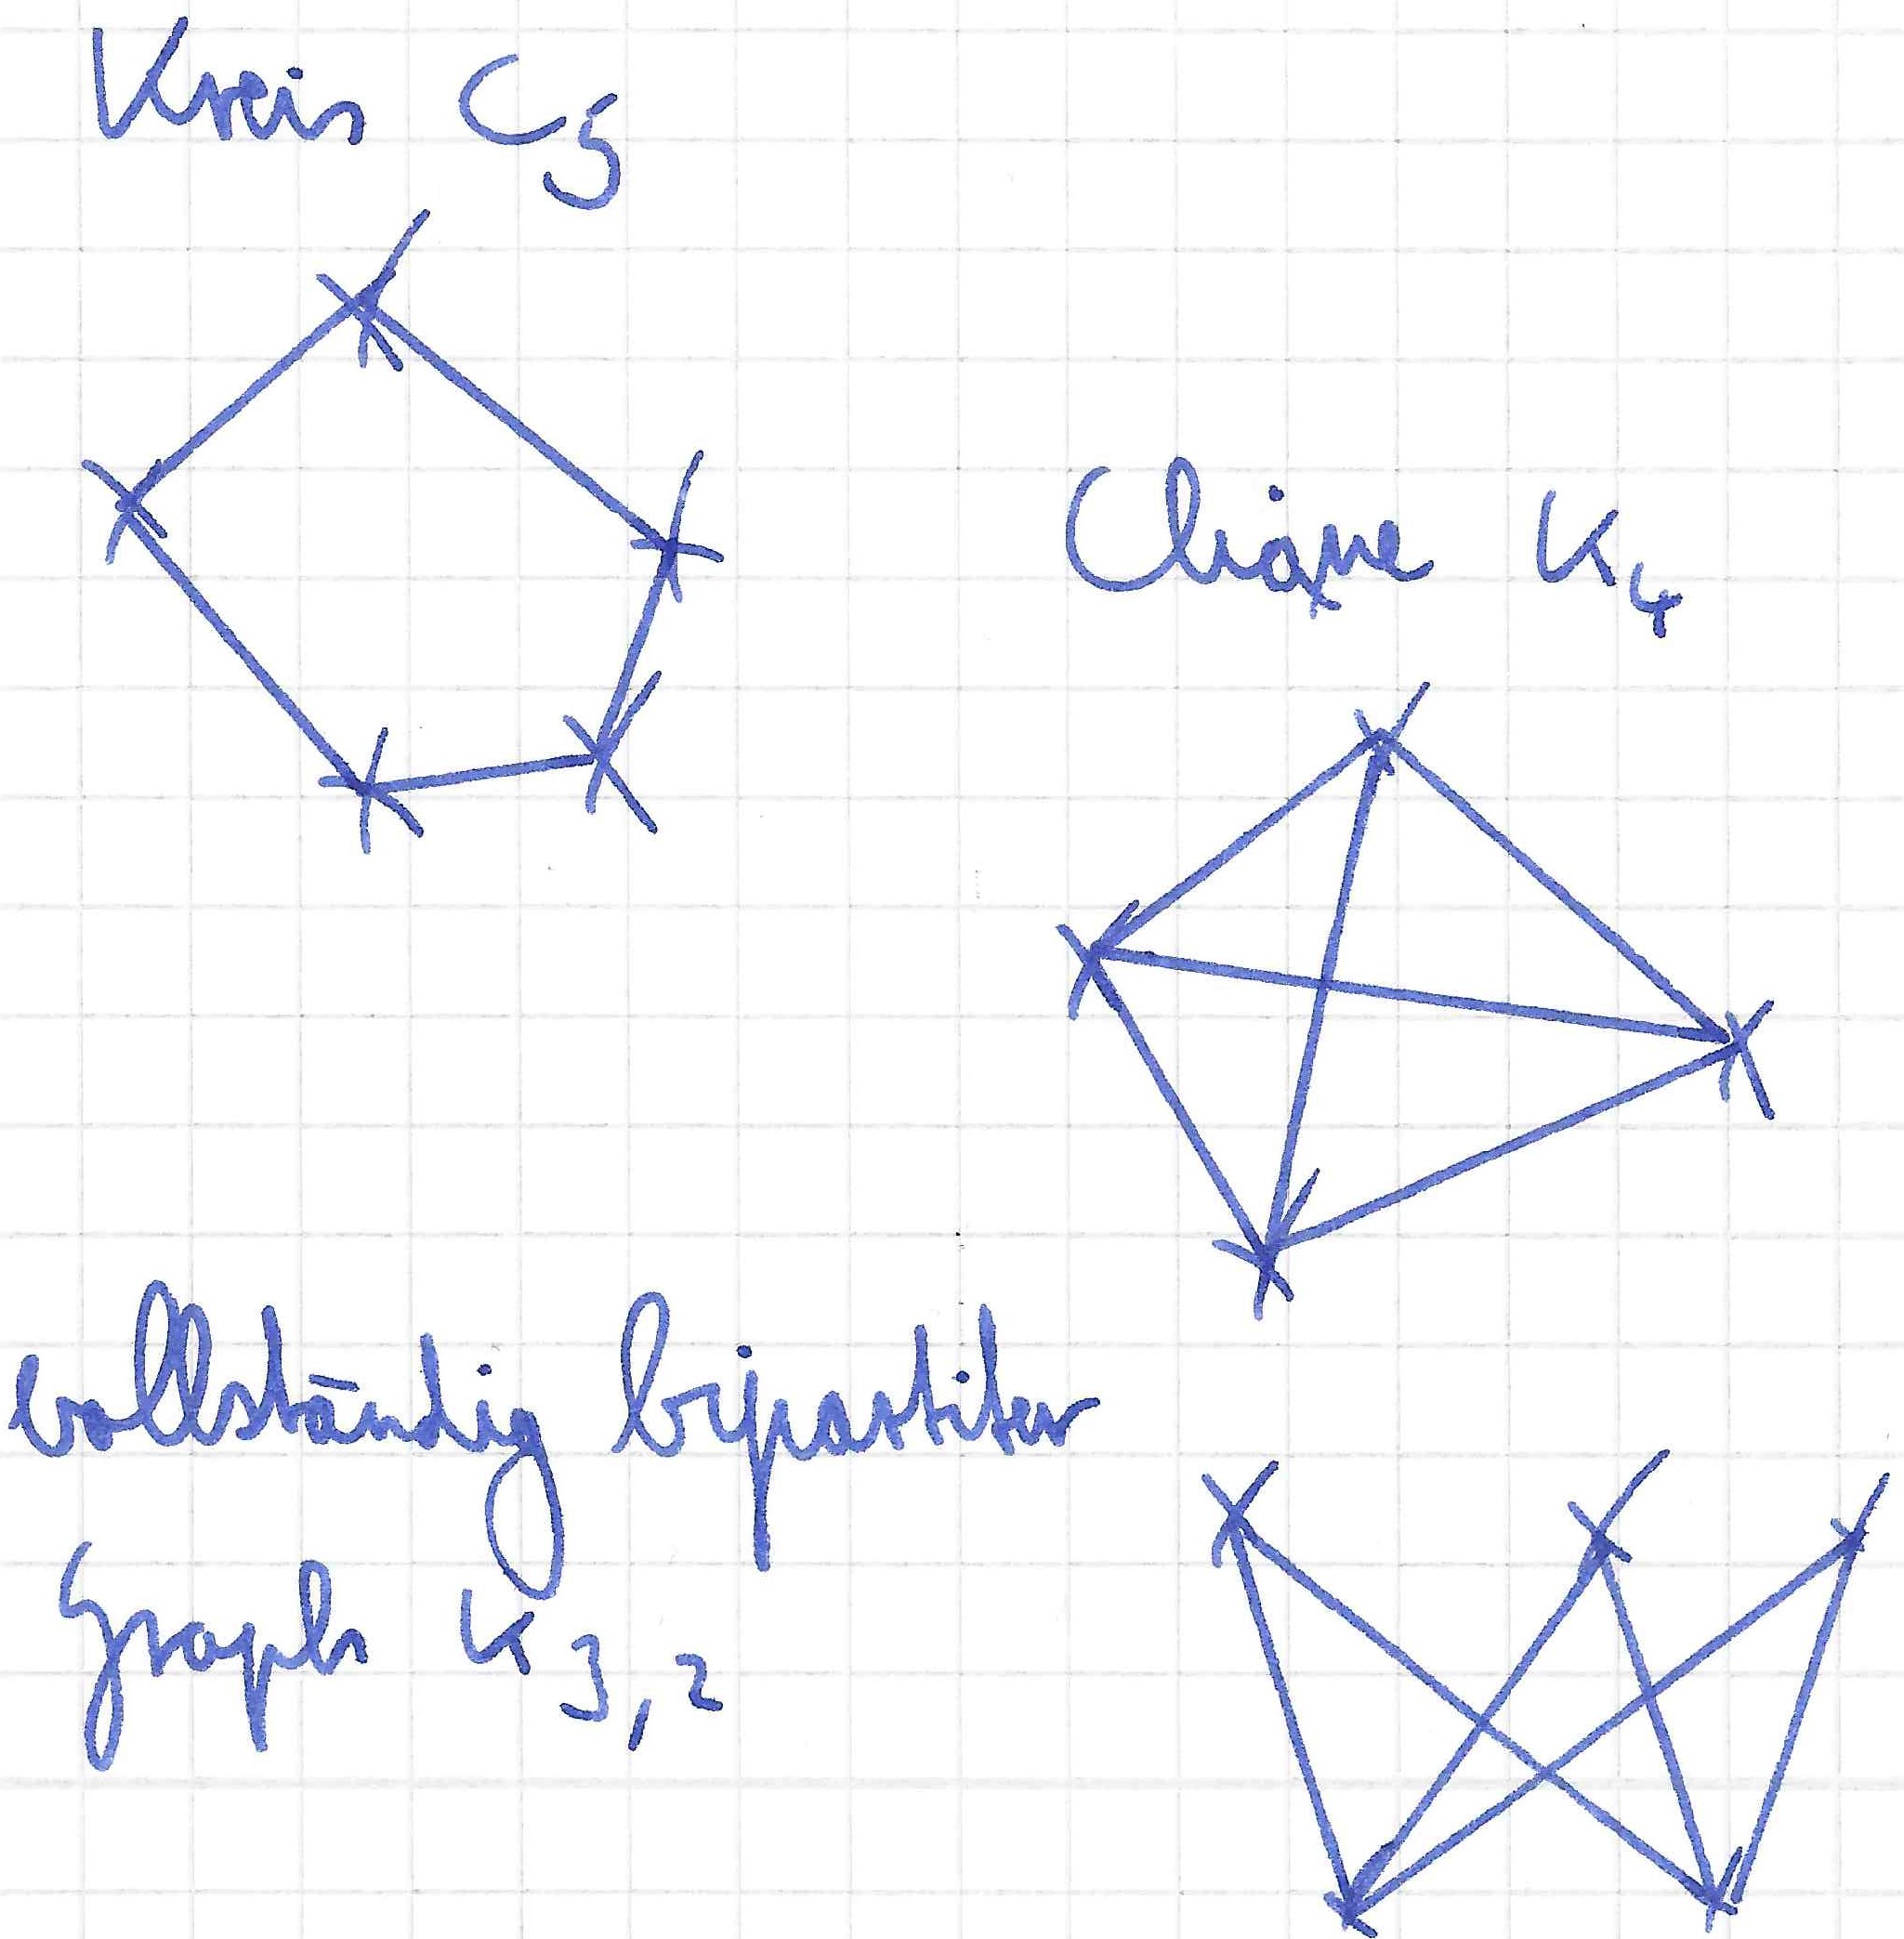 Kreis C5
Clique K4
vollständig bipartiter
Graph K3,2